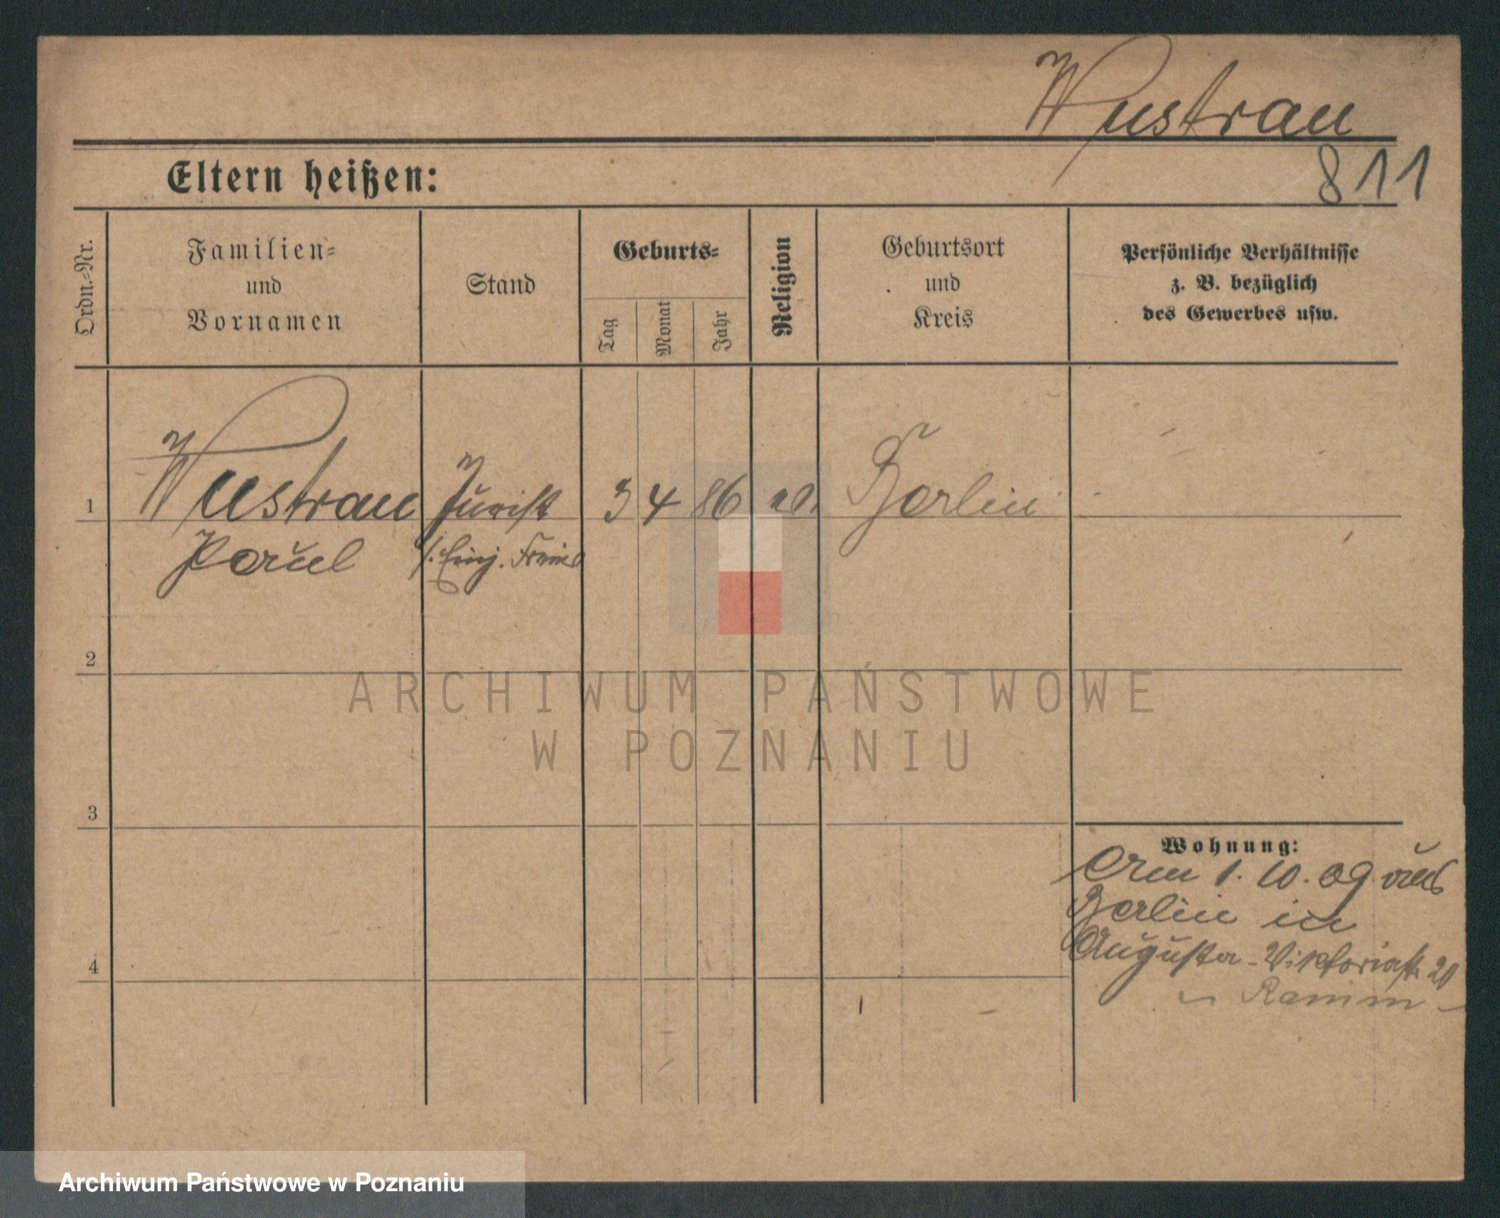 Wustrau
811
Eltern heißen:
Ordn.-Nr.
Familien- und Vornamen
Stand
Geburts-
Tag
Monat
Jahr
Religion
Geburtsort und Kreis
Persönliche Verhältnisse
z. B. bezüglich
des Gewerbes usw.
1
Wustrau
Jurist
3 4 86
Berlin
Paul
z. Einj. Freiw
2
ARCHIWUM PAŃSTWOWE
W POZNANIU
3
Wohnung:
Am 1. 10. 09 aus
Berlin in
Augusta-Viktoriastr 20
4
Ramm
Archiwum Państwowe w Poznaniu